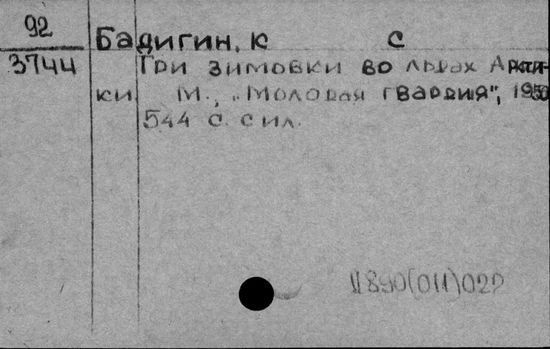 92
Бадигин, К С
3744 Три зимовки во льдах Аркти-
ки М., „Молодая гвардия", 1950
544 с. с ил.
11890(011)022